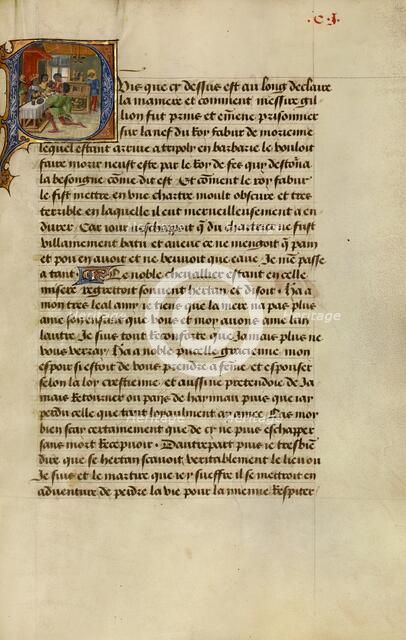 .C.J.
Puis que cy dessus est au long declaire
la maniere et comment messire gil
lion fut prins et emene prisonnier
sur la nef du Roy fabur de morienne
lequel estant arrive a tripoly en barbarie le vouloit
faire morir neust este par le Roy de fes qui destorna
la besongne come dit est Et coment le roy fabur
le fist mettre en une chartre moult obscure et tres
terrible en laquelle il eut merveilleusement a en
durer Car jour neschapoit q du chartrier ne fust
villainement batu et avecq ce ne mengoit q pain
et pou en avoit et ne beuvoit que eaue Je me passe
a tant Le noble chevallier estant en celle
misere regretoit souvent hertan et disoit Ha a
mon tres leal amy je tiens que la mere na pas plus
ame son enfant que vous et moy avons ame lun
lautre Je suis tout Reconforte que Jamais plus ne
vous verray Ha a noble pucelle gracienne mon
espoir si estoit de vous prendre a feme et espouser
selon la loy crestienne et aussi ne pretendoie de Ja
mais Retourner ou pays de haynnau puis que jay
perdu celle que tant loyaulment ay amee Las moy
bien scay certainement que de cy ne puis eschapper
sans mort Recepvoir Dautrepart puis je tresbien
dire que se hertan scavoit veritablement le lieu ou
Je suis et le martire que icy seuffre il se mettroit en
adventure de perdre la vie pour la mienne Respiter
Heritage
Heritage